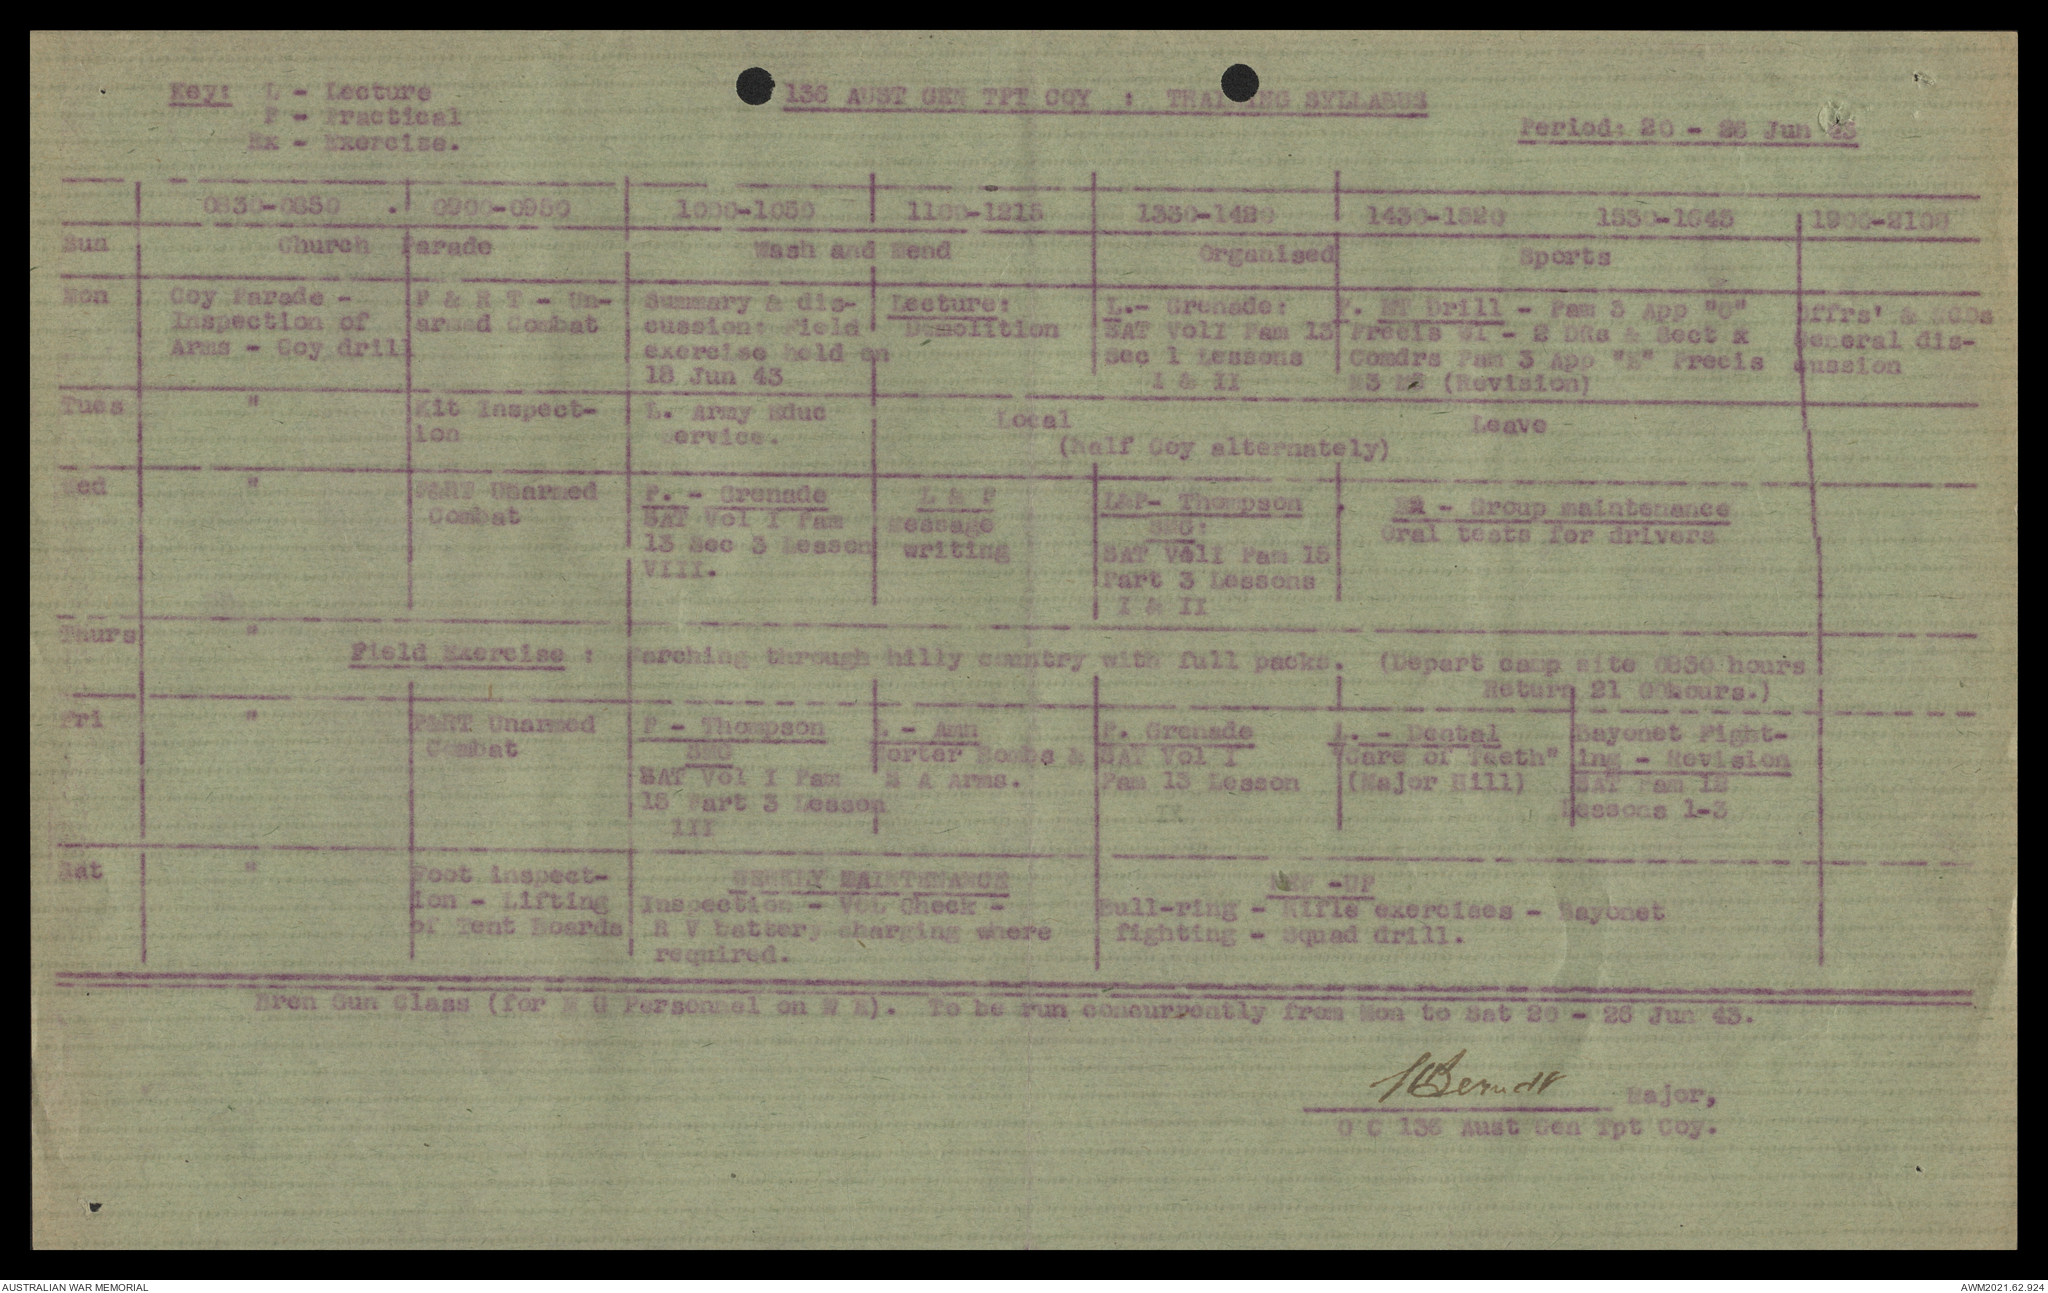 Key: L - Lecture
P - Practical
Ex - Exercise.
136 AUST GEN TPT COY : TRAINING SYLLABUS
Period: 20 - 26 Jun 43
0830-0850 . 0900-0950 1000-1050 1100-1215 1330-1420 1430-1520 1530-1645 1900-2100
Sun Church Parade Wash and Mend Organised Sports
Mon
Coy Parade -
Inspection of
Arms - Coy drill
P & R T - Un-
armed Combat
Summary & dis-
cussion: Field
exercise held on
18 Jun 43
Lecture:
Demolition
L.- Grenade:
SAT VolI Pam 13
Sec 1 Lessons
I & II
P. MT Drill - Pam 3 App "C"
Precis - 2 DRs & Sect
Comdrs Pam 3 App "E" Precis
(Revision)
Offrs' & NCOs
General dis-
cussion
Tues "
Kit Inspect-
ion
L. Army Educ
Service.
Local Leave
(Half Coy alternately)
Wed "
P&RT Unarmed
Combat
P. - Grenade
SAT Vol I Pam
13 Sec 3 Lesson
VIII.
L & P
Message
writing
L&P- Thompson
SMG:
SAT VolI Pam 15
Part 3 Lessons
I & II
- Group maintenance
Oral tests for drivers
Thurs "
Field Exercise : Marching through hilly country with full packs. (Depart camp site 0830 hours
Return 21 00hours.)
Fri "
P&RT Unarmed
Combat
P - Thompson
SMG
SAT Vol I Pam
15 Part 3 Lesson
III
L. - Amn
Morter Bombs &
S A Arms.
P. Grenade
SAT Vol I
Pam 13 Lesson
IX
L. - Dental
"Care of Teeth"
(Major Hill)
Bayonet Fight-
ing - Revision
SAT Pam 12
Lessons 1-3
Sat "
Foot inspect-
ion - Lifting
of Tent Boards
WEEKLY MAINTENANCE
Inspection - Check -
R V battery charging where
required.
PEP -UP
Bull-ring - Rifle exercises - Bayonet
fighting - Squad drill.
Bren Gun Class (for N G Personnel on W E). To be run concurrently from Mon to Sat 20 - 26 Jun 43.
Berndt Major,
O C 136 Aust Gen Tpt Coy.
AUSTRALIAN WAR MEMORIAL
AWM2021.62.924